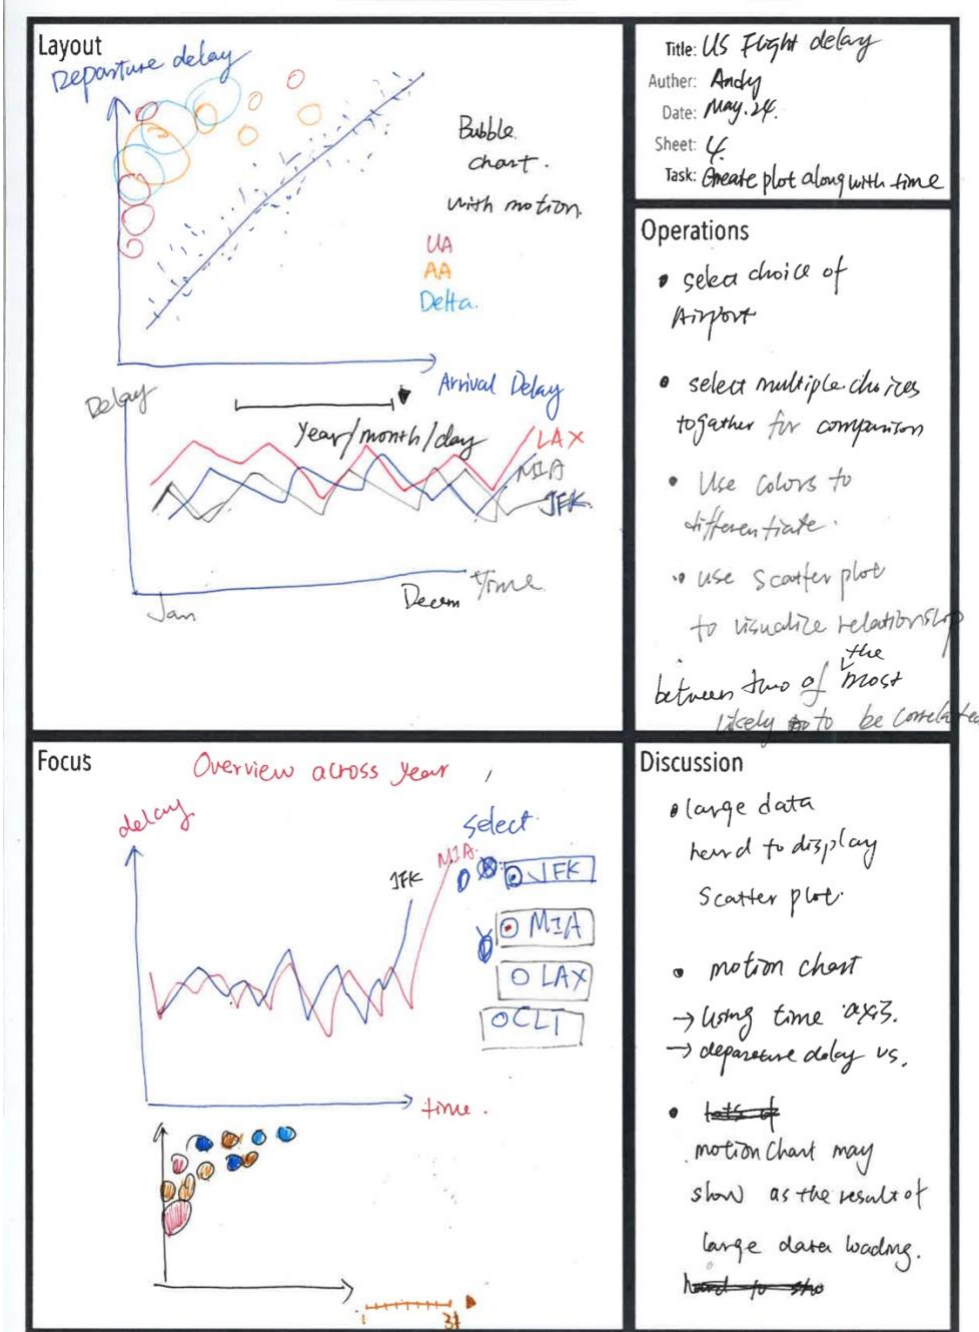 Layout
Departure delay
Bubble
chart.
with motion.
UA
AA
Delta.
Arrival Delay
Delay
year/month/day
LAX
MIA
JFK.
time
Jan
Decem
Title: US Flight delay
Auther: Andy
Date: May.24.
Sheet: 4.
Task: Create plot along with time
Operations
• select choice of
Airport
• select multiple choices
togather for comparison
• Use colors to
differentiate.
• use scatter plot
to visualize relationship
between two of the most
likely to be correlated
Focus
Overview across year
delay
select
JFK
MIA.
JFK
MIA
LAX
CLT
time.
1
31
Discussion
• large data
hard to display
scatter plot.
• motion chart
→ Using time axis.
→ depareture delay vs.
• lots of
motion chart may
slow as the result of
large data loading.
hard to sho